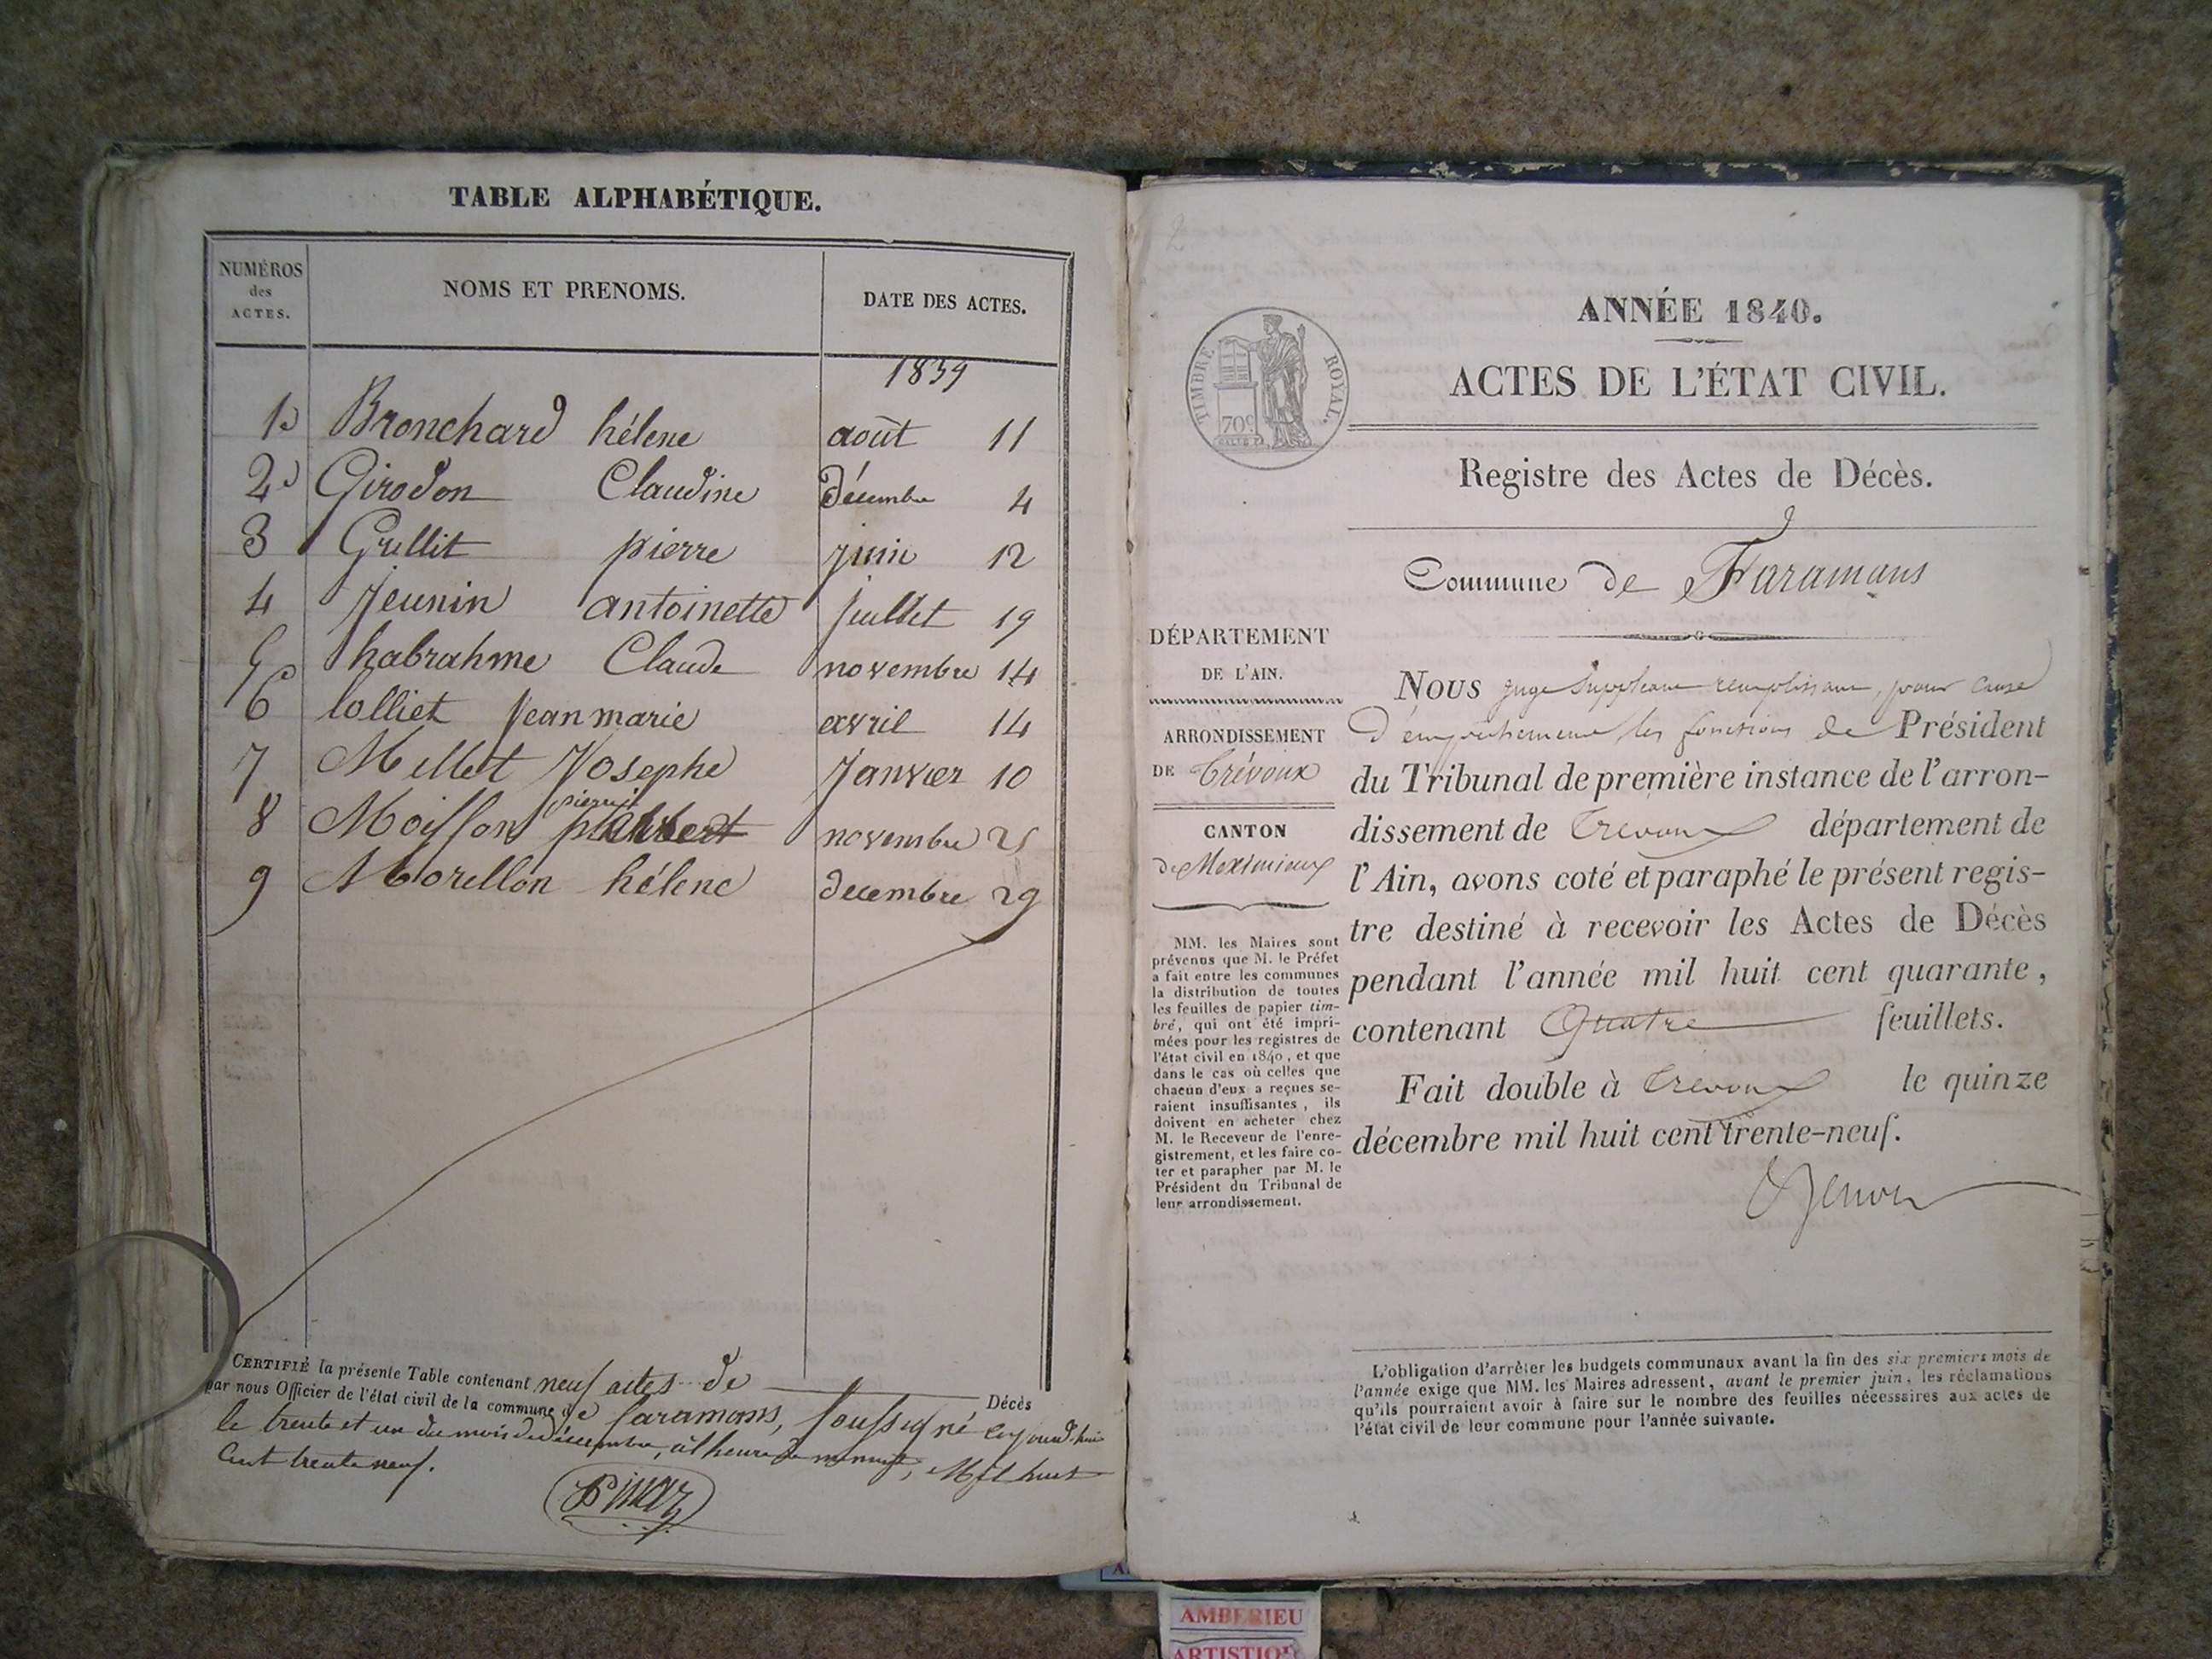 TABLE ALPHABÉTIQUE.
NUMÉROS des ACTES.
NOMS ET PRENOMS.
DATE DES ACTES.
1839
1 Bronchard hélene août 11
2 Girodon Claudine Décembre 4
3 Grellit pierre juin 12
4 Jeunin antoinette juillet 19
5 habrahme Claude novembre 14
6 lolliet Jean marie avril 14
7 Mellet Josephe Janvier 10
8 Moisson pierre novembre 25
9 Morellon hélene decembre 29
CERTIFIÉ la présente Table contenant neuf actes de Décès
par nous Officier de l'état civil de la commune de faramans, soussigné cejourd'hui
le trente et un du mois de décembre, à l'heure de minuit, Mil huit
Cent trente neuf.
TIMBRE ROYAL.
70c
ANNÉE 1840.
ACTES DE L'ÉTAT CIVIL.
Registre des Actes de Décès.
Commune de Faramans
DÉPARTEMENT
DE L'AIN.
ARRONDISSEMENT
DE Trévoux
CANTON
de Meximieux
MM. les Maires sont
prévenus que M. le Préfet
a fait entre les communes
la distribution de toutes
les feuilles de papier tim-
bré, qui ont été impri-
mées pour les registres de
l'état civil en 1840, et que
dans le cas où celles que
chacun d'eux a reçues se-
raient insuffisantes, ils
doivent en acheter chez
M. le Receveur de l'enre-
gistrement, et les faire co-
ter et parapher par M. le
Président du Tribunal de
leur arrondissement.
NOUS juge Suppléant remplissant, pour cause
d'empêchement les fonctions de Président
du Tribunal de première instance de l'arron-
dissement de Trévoux département de
l'Ain, avons coté et paraphé le présent regis-
tre destiné à recevoir les Actes de Décès
pendant l'année mil huit cent quarante,
contenant Quatre feuillets.
Fait double à Trévoux le quinze
décembre mil huit cent trente-neuf.
L'obligation d'arrêter les budgets communaux avant la fin des six premiers mois de
l'année exige que MM. les Maires adressent, avant le premier juin, les réclamations
qu'ils pourraient avoir à faire sur le nombre des feuilles nécessaires aux actes de
l'état civil de leur commune pour l'année suivante.
AMBERIEU